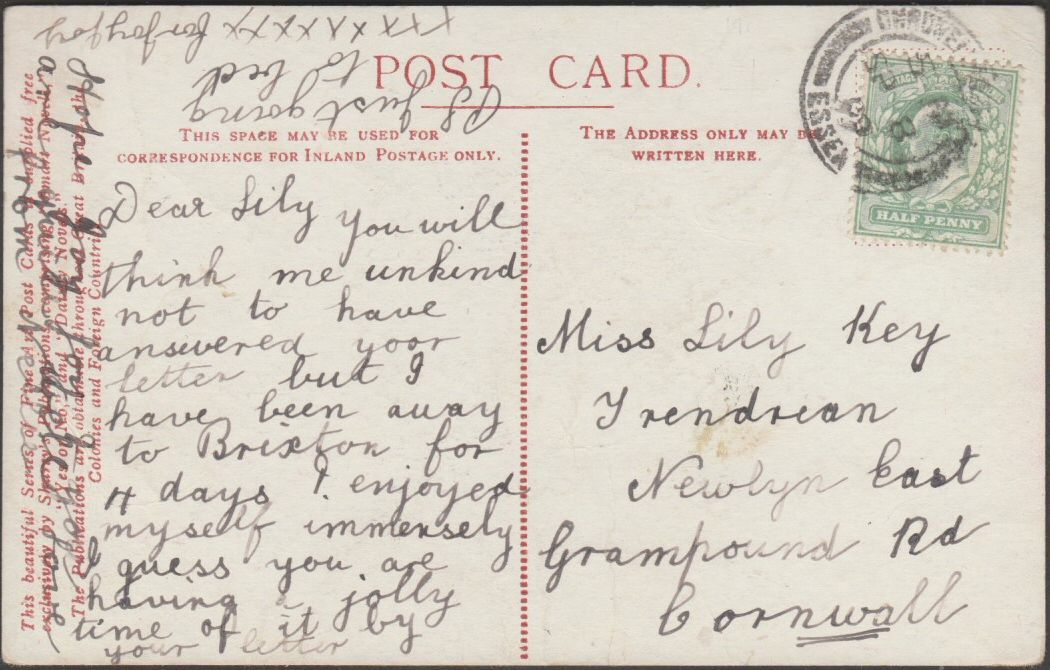 POST CARD.
THIS SPACE MAY BE USED FOR
CORRESPONDENCE FOR INLAND POSTAGE ONLY.
THE ADDRESS ONLY MAY BE
WRITTEN HERE.
HALF PENNY
ESSEX
Dear Lily you will
think me unkind
not to have
answered yoor
letter but I
have been away
to Brixton for
4 days I enjoyed
myself immensely
I guess you are
having a jolly
time of it by
your letter
Miss Lily Key
Trendrean
Newlyn East
Grampound Rd
Cornwall
PS Just going
to bed
XXXXXXXX for
This beautiful Series of Fine Art Post Cards is supplied free
exclusively by Shurey's Publications, comprising "Smart Novels,"
"Yes or No," and "Dainty Novels."
The Publications are obtainable throughout Great Britain, the
Colonies and Foreign Countries.